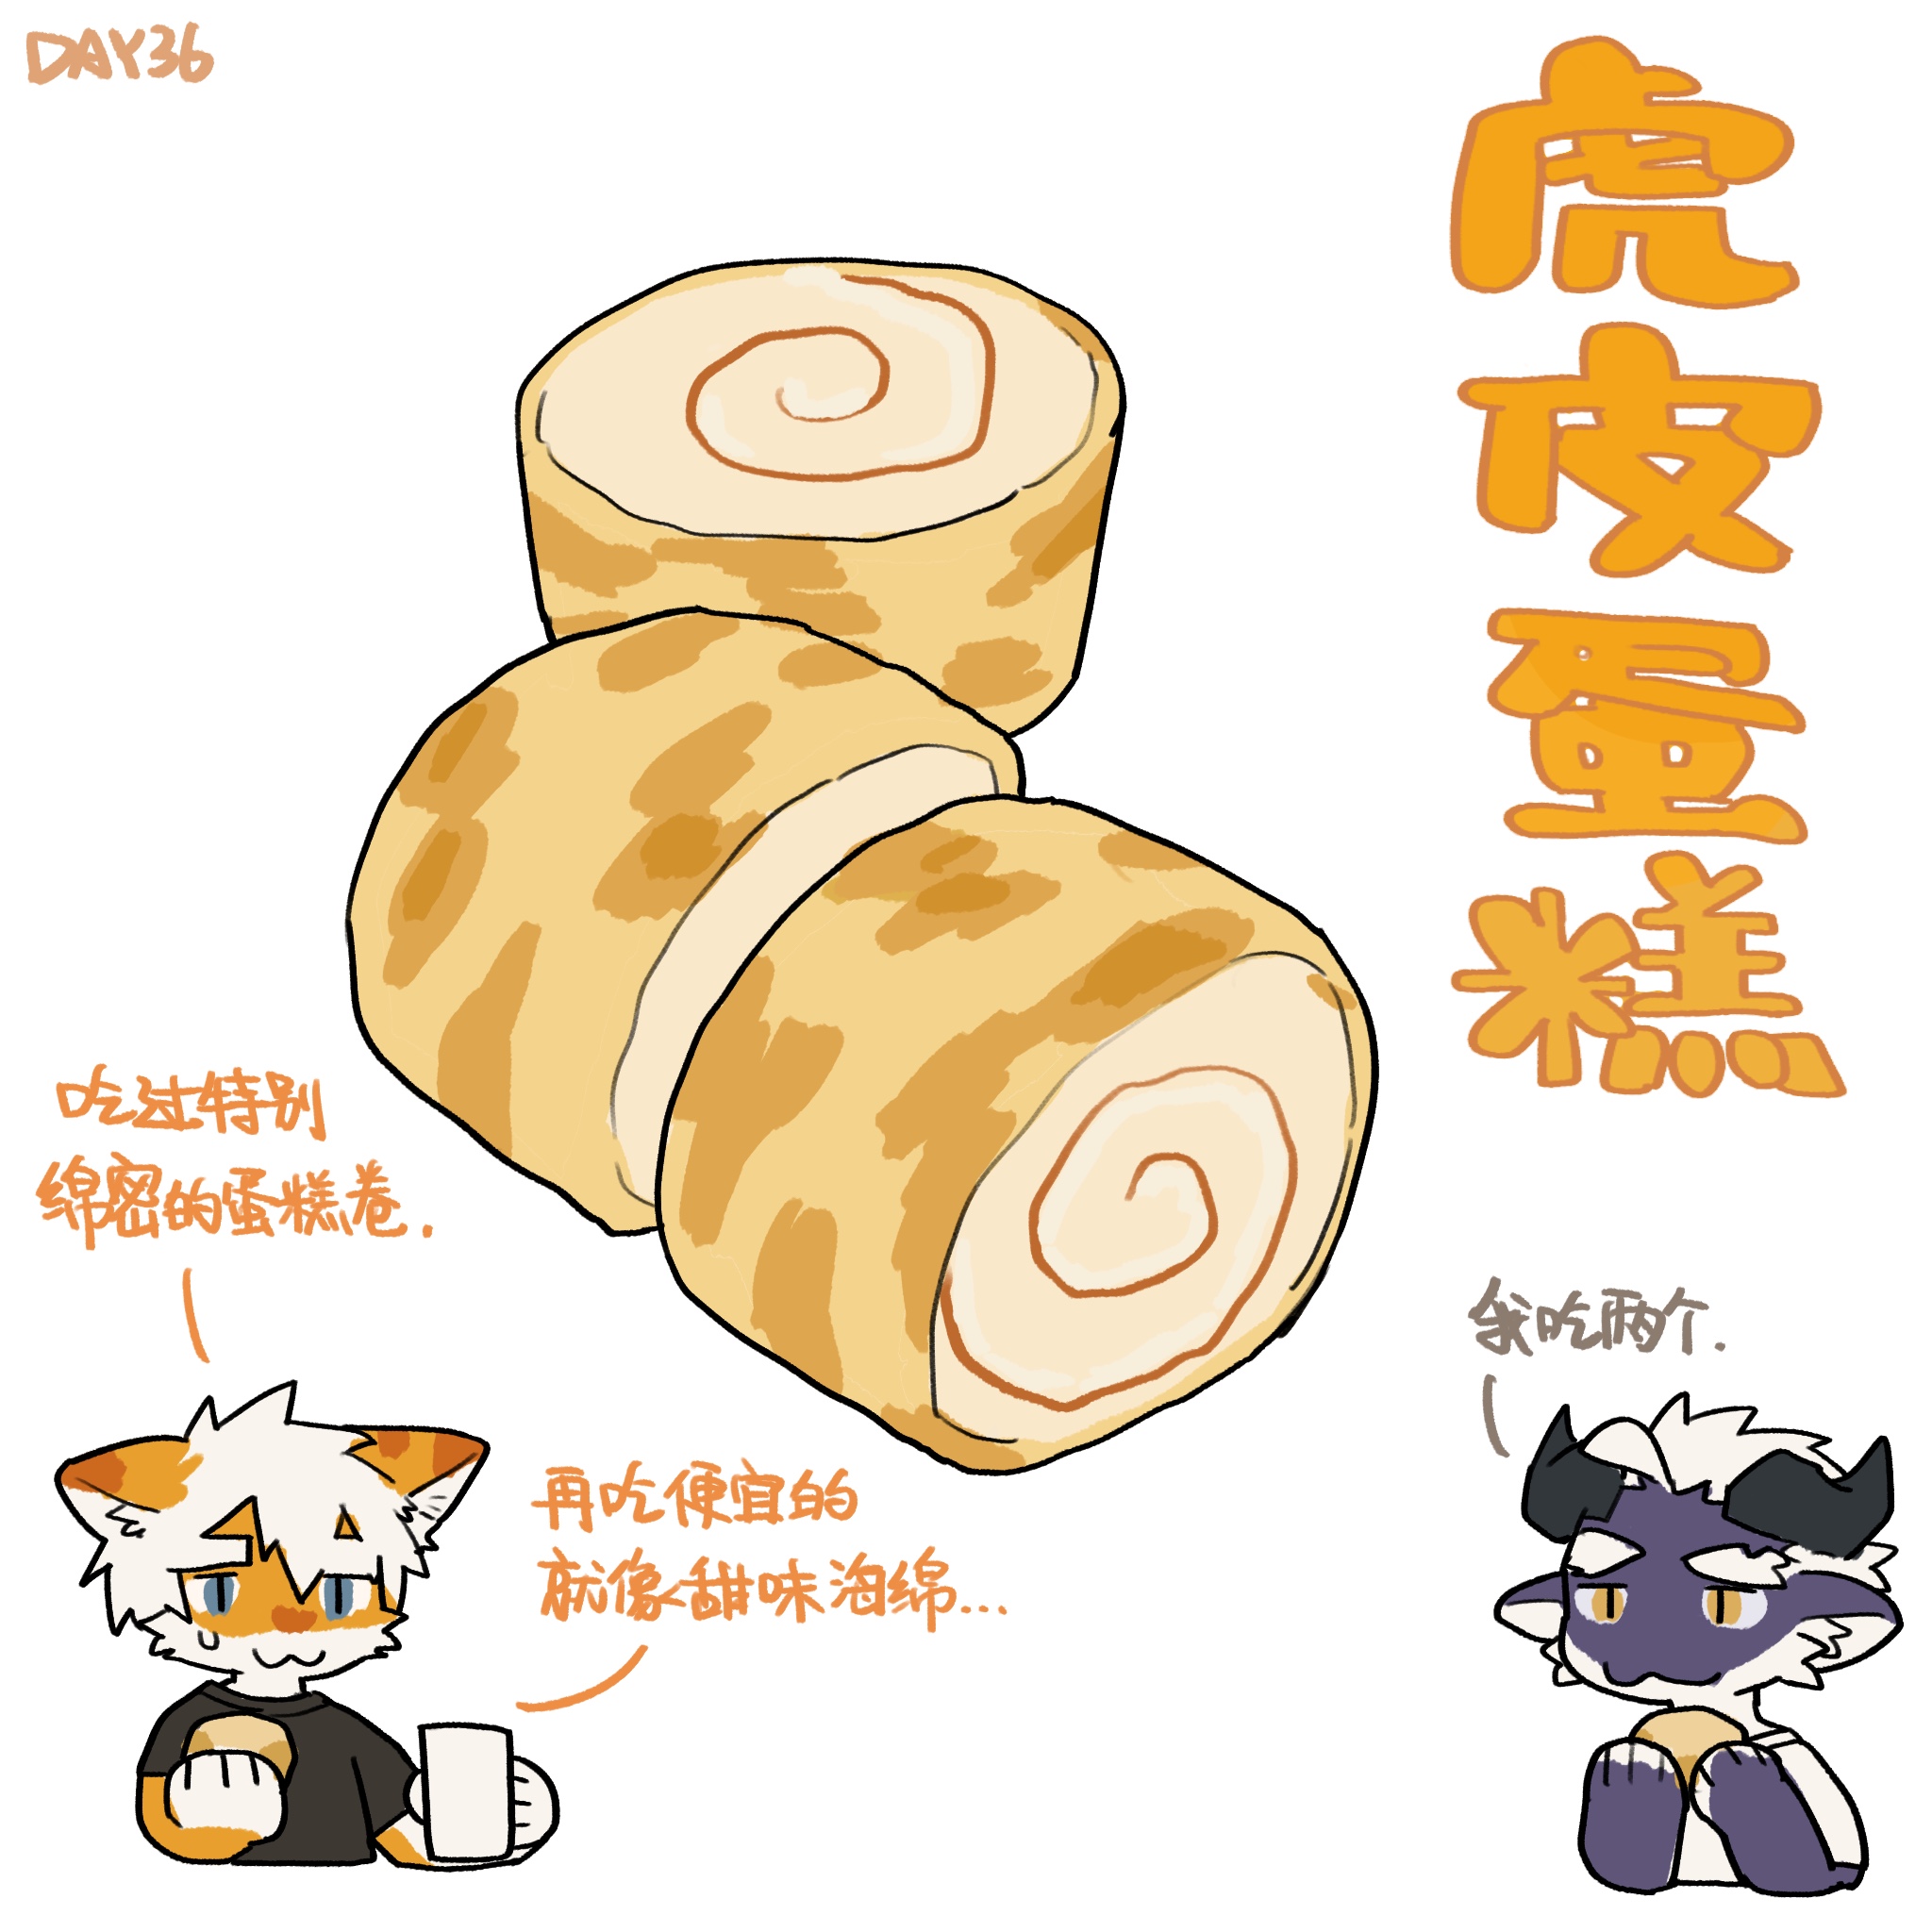 DAY36
虎皮蛋糕
吃过特别
绵密的蛋糕卷.
再吃便宜的
就像甜味海绵...
我吃两个.